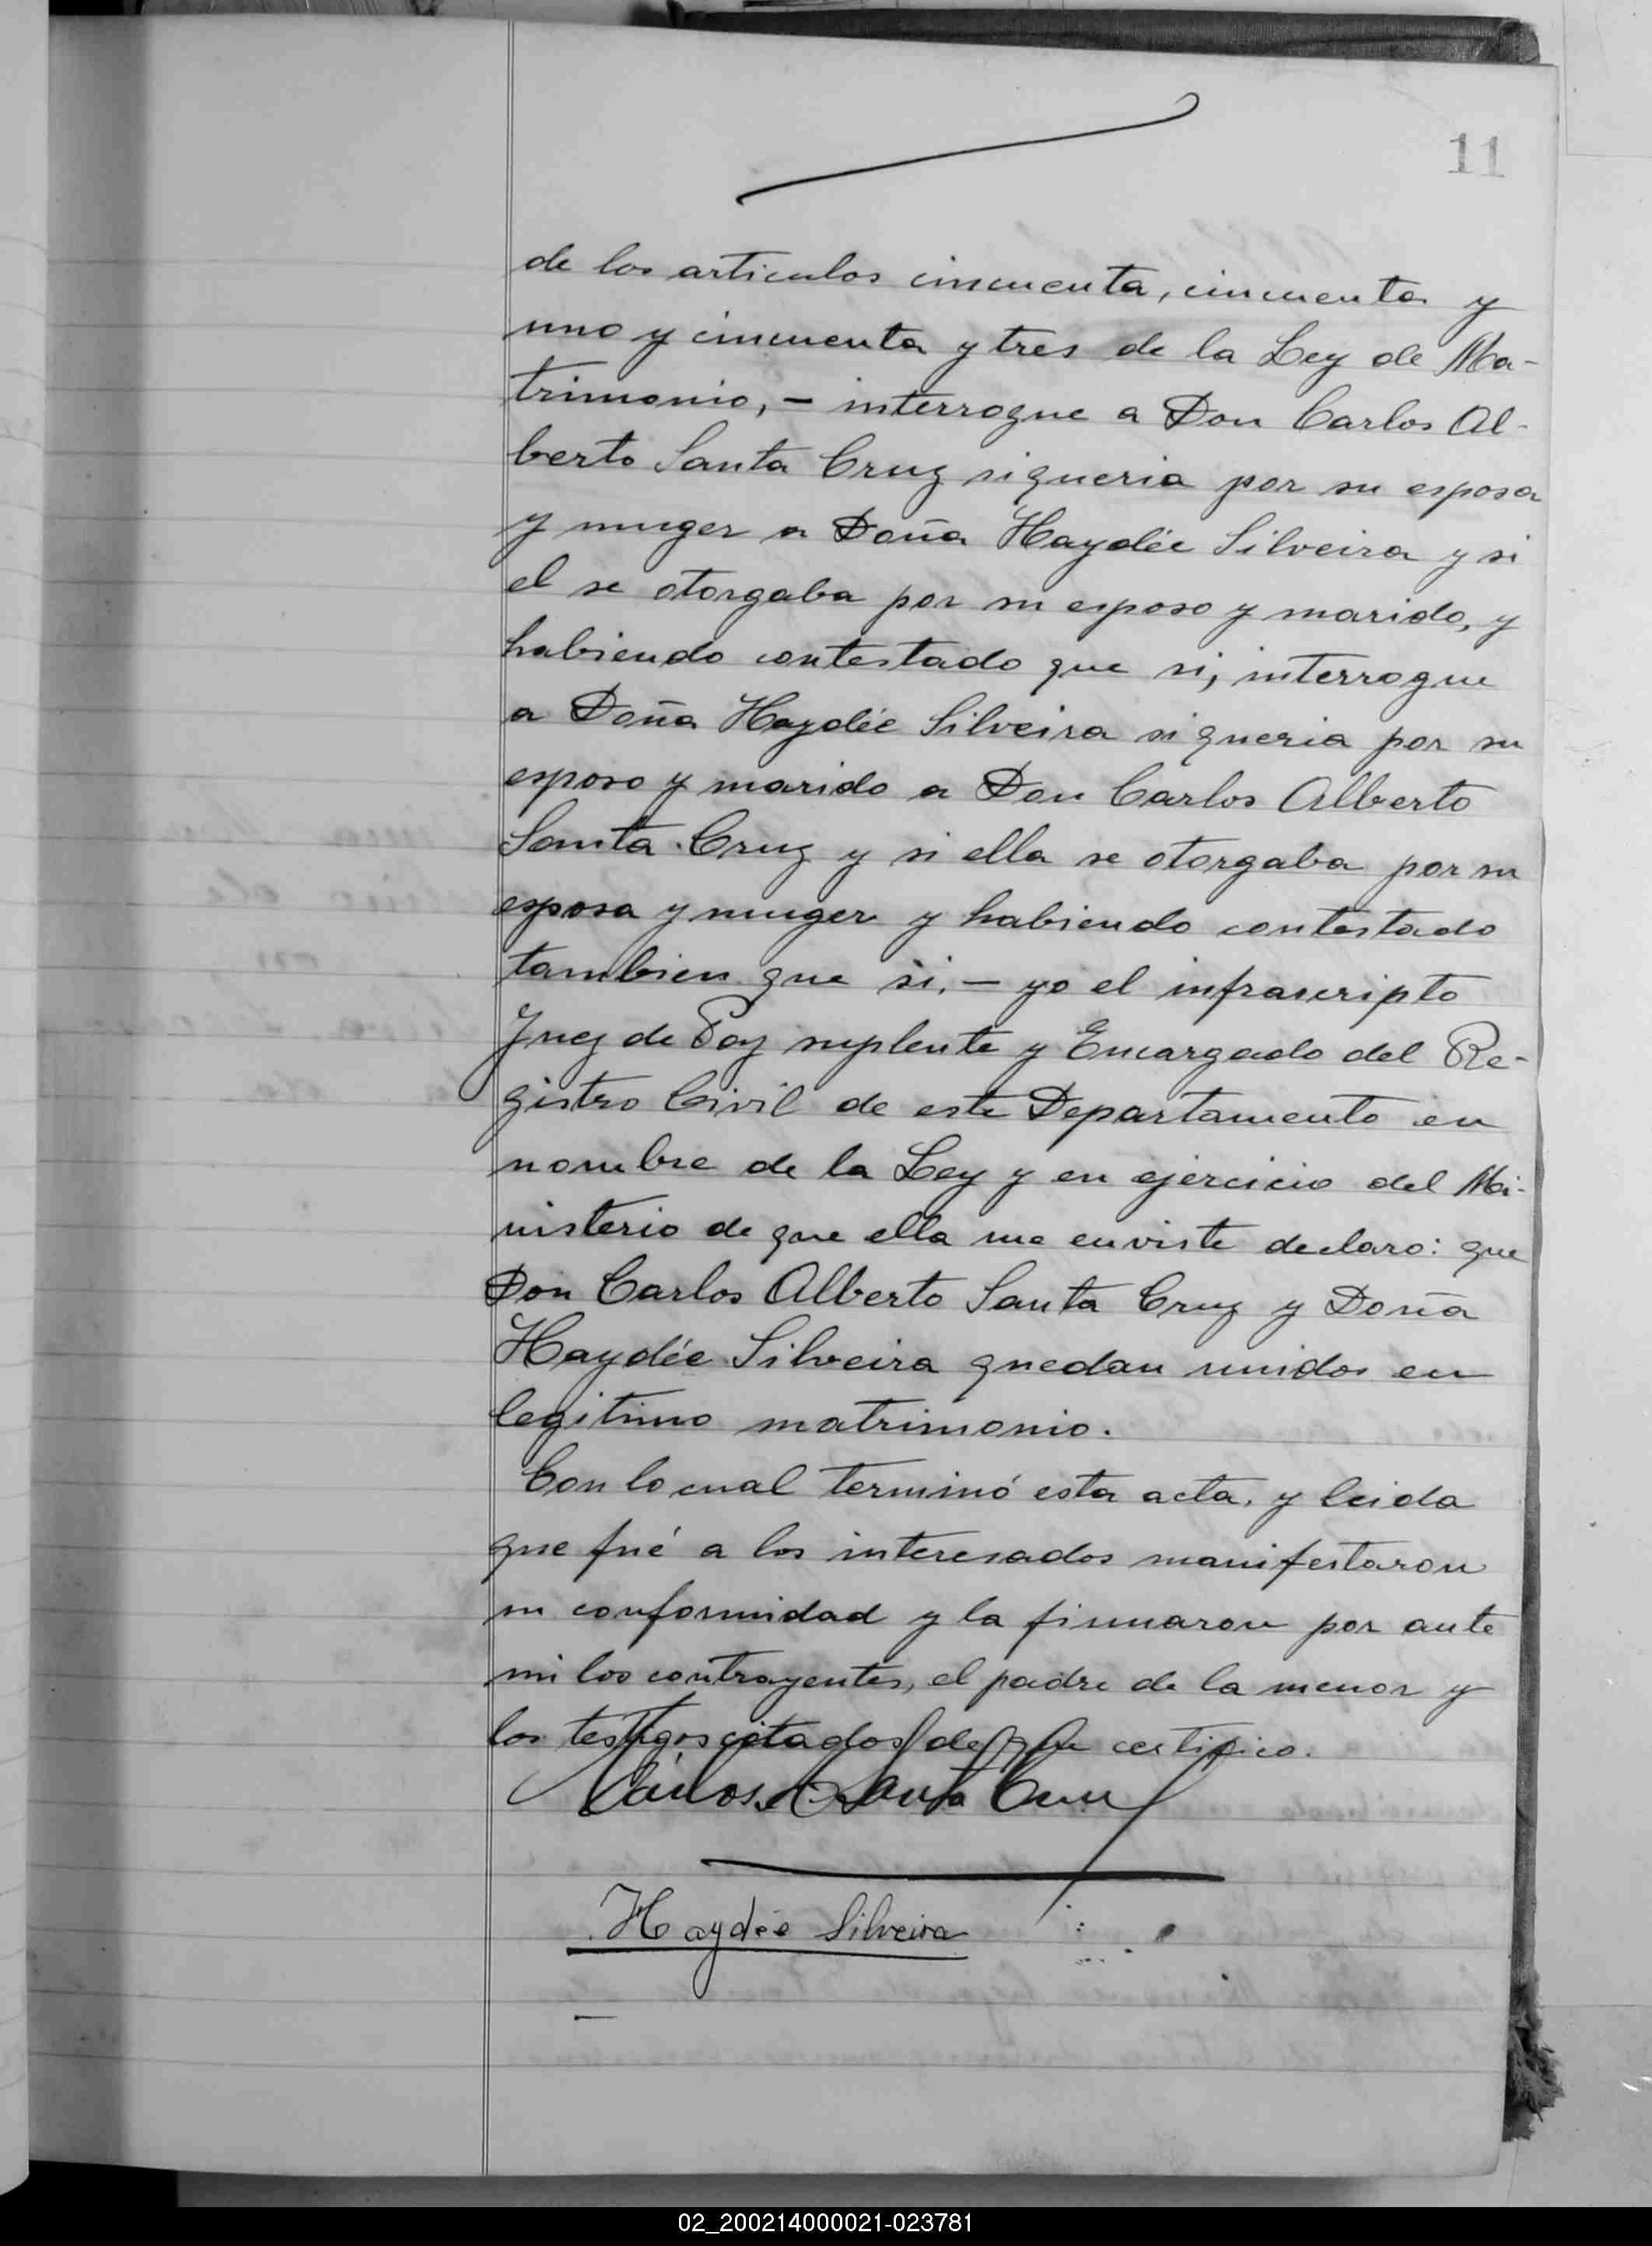 11
de los articulos cincuenta, cincuenta y
uno y cincuenta y tres de la Ley de Ma-
trimonio, - interrogue a Don Carlos Al-
berto Santa Cruz si queria por su esposa
y muger a Doña Haydée Silveira y si
el se otorgaba por su esposo y marido, y
habiendo contestado que si, interrogue
a Doña Haydée Silveira si queria por su
esposo y marido a Don Carlos Alberto
Santa Cruz y si ella se otorgaba por su
esposa y muger y habiendo contestado
tambien que si, - yo el infrascripto
Juez de Paz suplente y Encargado del Re-
gistro Civil de este Departamento en
nombre de la Ley y en ejercicio del Mi-
nisterio de que ella me enviste declaro: que
Don Carlos Alberto Santa Cruz y Doña
Haydée Silveira quedan unidos en
legitimo matrimonio.
Con lo cual terminó esta acta, y leida
que fué a los interesados manifestaron
su conformidad y la firmaron por ante
mi los contrayentes, el padre de la menor y
los testigos citados de que certifico.
Carlos A. Santa Cruz
Haydée Silveira
02_200214000021-023781